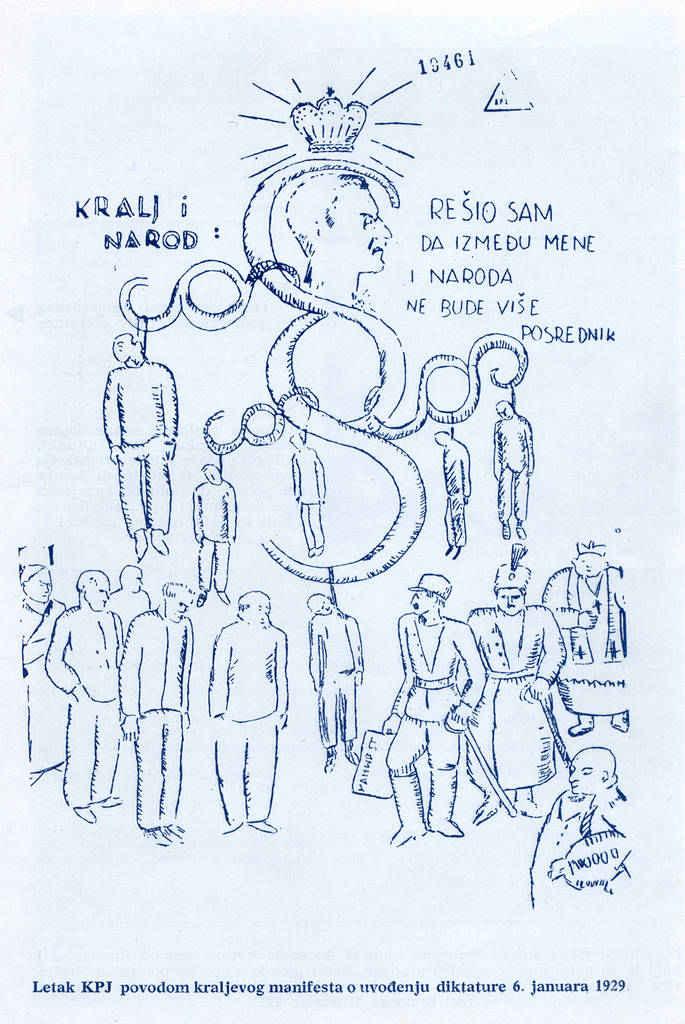 19461
KRALJ i
NAROD:
REŠIO SAM
DA IZMEĐU MENE
I NARODA
NE BUDE VIŠE
POSREDNIK
Letak KPJ povodom kraljevog manifesta o uvođenju diktature 6. januara 1929.